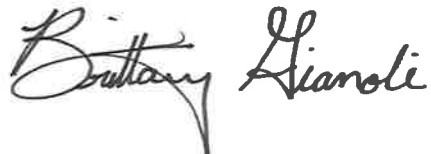 Brittany Gianoli